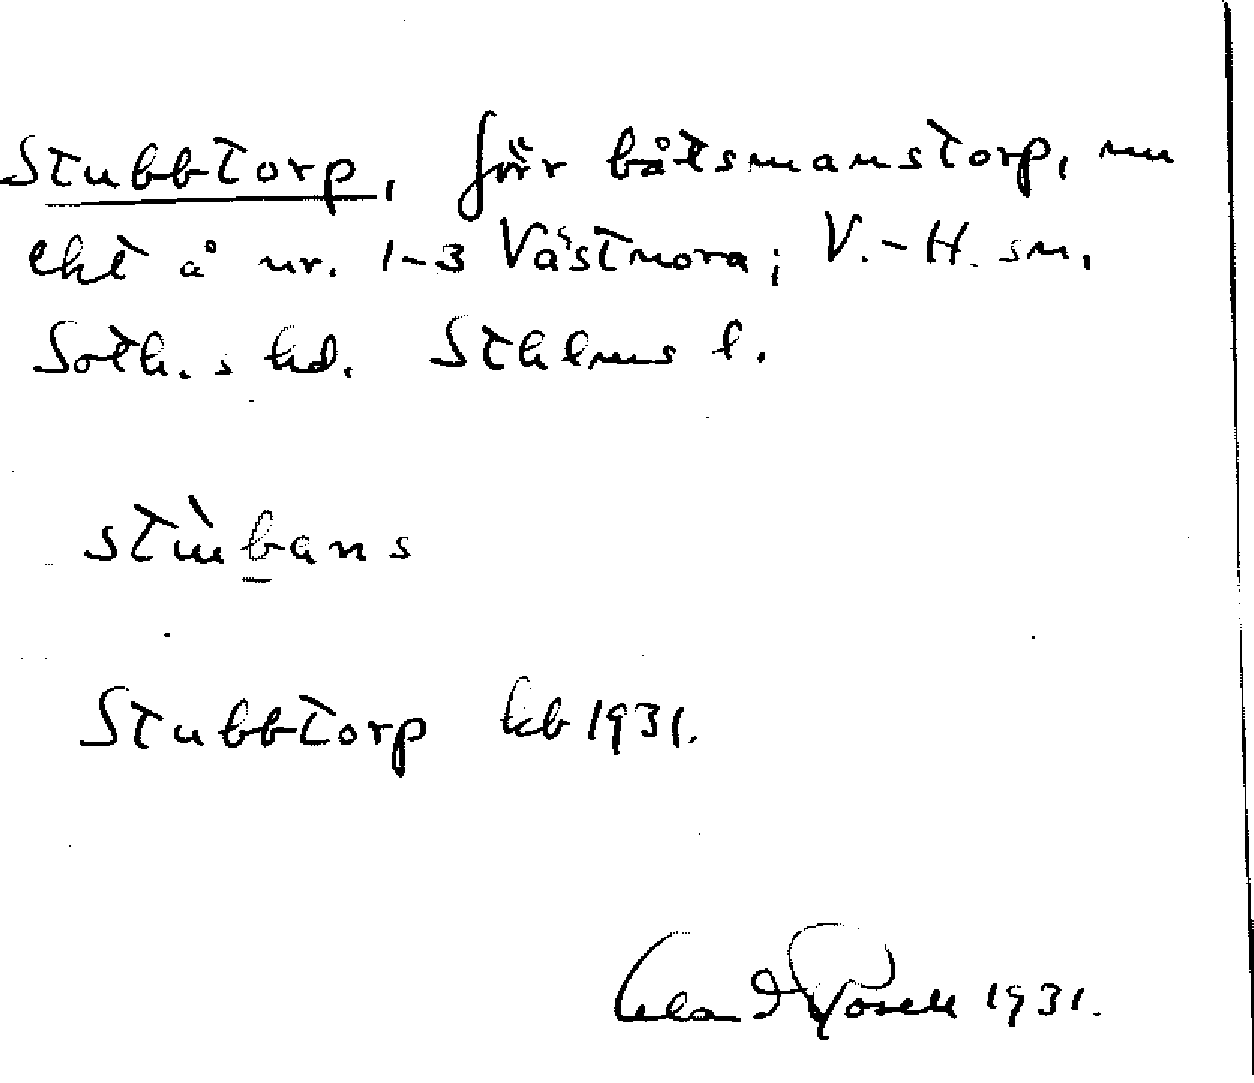 Stubbtorp, förr båtsmanstorp, nu
lht å nr. 1-3 Västnora; V.-H. sn.
Soth.s hd. Sthlms l.
stùbans
Stubbtorp kb 1931.
1931.